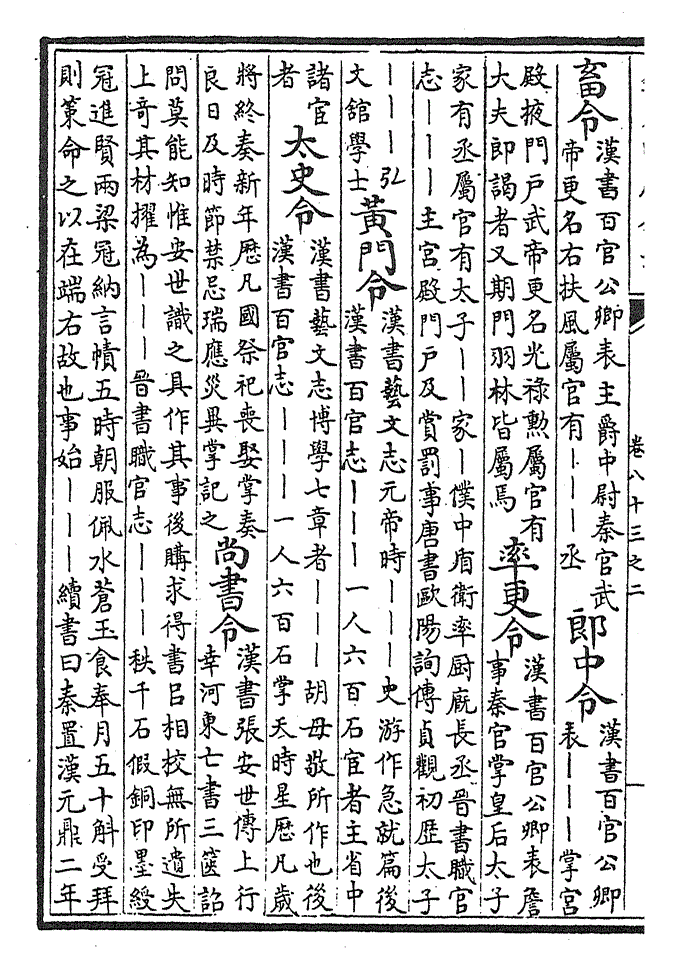 卷八十三之二
畜令
漢書百官公卿表主爵中尉秦官武
帝更名右扶風屬官有｜｜｜丞
郎中令
漢書百官公卿
表｜｜｜掌宮
殿掖門戶武帝更名光祿勲屬官有
大夫郎謁者又期門羽林皆屬焉
率更令
漢書百官公卿表詹
事秦官掌皇后太子
家有丞屬官有太子｜｜家｜僕中盾衛率厨廐長丞晉書職官
志｜｜｜主宮殿門戶及賞罰事唐書歐陽詢傳貞觀初歷太子
｜｜｜弘
文舘學士
黃門令
漢書藝文志元帝時｜｜｜史游作急就篇後
漢書百官志｜｜｜一人六百石宦者主省中
諸宦
者
太史令
漢書藝文志博學七章者｜｜｜胡母敬所作也後
漢書百官志｜｜｜一人六百石掌天時星歷凡歲
將終奏新年歷凡國祭祀喪娶掌奏
良日及時節禁忌瑞應災異掌記之
尚書令
漢書張安世傳上行
幸河東亡書三篋詔
問莫能知惟安世識之具作其事後購求得書吕相校無所遺失
上奇其材擢為｜｜｜晉書職官志｜｜｜秩千石假銅印墨綬
冠進賢兩梁冠納言幘五時朝服佩水蒼玉食奉月五十斛受拜
則策命之以在端右故也事始｜｜｜續書曰秦置漢元鼎二年